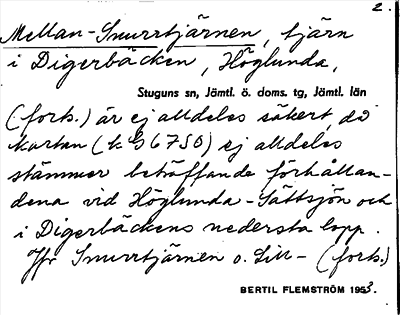 2.
Mellan-Snurrtjärnen, tjärn
i Digerbäcken, Höglunda,
Stuguns sn, Jämtl. ö. doms. tg, Jämtl. län
(forts.) är ej alldeles säkert, då
kartan (k G6750) ej alldeles
stämmer beträffande förhållan-
dena vid Höglunda-Sättsjön och
i Digerbäckens nedersta lopp.
Jfr Snurrtjärnen o. Lill- (forts.)
BERTIL FLEMSTRÖM 1953.